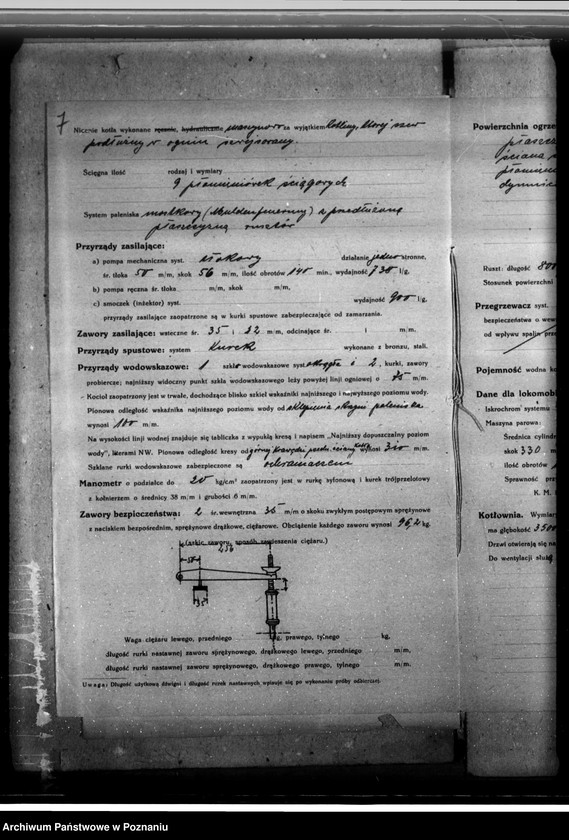 7
Nicenie kotła wykonane ręcznie, hydraulicznie maszynowo za wyjątkiem kotliny, której szew
podłużny w ogniu
Ścięgna ilość rodzaj i wymiary
9 płomieniówek ściągowych
System paleniska z przedłużoną
płaszczyzną rusztów
Przyrządy zasilające:
a) pompa mechaniczna syst. działanie jednostronne,
śr. tłoka 50 m/m, skok 56 m/m, ilość obrotów 140 min., wydajność 730 l/g.
b) pompa ręczna śr. tłoka m/m, skok m/m,
c) smoczek (inżektor) syst. wydajność 900 l/g.
przyrządy zasilające zaopatrzone są w kurki spustowe zabezpieczające od zamarzania.
Zawory zasilające: wsteczne śr. 35 i 32 m/m, odcinające śr. i m/m.
Przyrządy spustowe: system Kurek wykonane z bronzu, stali.
Przyrządy wodowskazowe: 1 szkło wodowskazowe syst. okrągła i 2, kurki, zawory
probiercze; najniższy widoczny punkt szkła wodowskazowego leży powyżej linji ogniowej o 35 m/m.
Kocioł zaopatrzony jest w trwałe, dochodzące blisko szkieł wskaźniki najniższego i najwyższego poziomu wody.
Pionowa odległość wskaźnika najniższego poziomu wody od sklepienia skrzyni paleniska
wynosi 100 m/m.
Na wysokości linji wodnej znajduje się tabliczka z wypukłą kresą i napisem „Najniższy dopuszczalny poziom
wody", literami NW. Pionowa odległość kresy od górnej krawędzi przedn. ściany kotła wynosi 310 m/m.
Szklane rurki wodowskazowe zabezpieczone są ochraniaczem
Manometr o podziałce do 20 kg/cm² zaopatrzony jest w rurkę syfonową i kurek trójprzelotowy
z kołnierzem o średnicy 38 m/m i grubości 6 m/m.
Zawory bezpieczeństwa: 2 śr. wewnętrzna 35 m/m o skoku zwykłym postępowym sprężynowe
z naciskiem bezpośrednim, sprężynowe drążkowe, ciężarowe. Obciążenie każdego zaworu wynosi 96,2 kg
(szkic zaworu, sposób zawieszenia ciężaru.)
450
50
35
Waga ciężaru lewego, przedniego kg, prawego, tylnego kg,
długość rurki nastawnej zaworu sprężynowego, drążkowego lewego, przedniego m/m,
długość rurki nastawnej zaworu sprężynowego, drążkowego prawego, tylnego m/m.
Uwaga: Długość użytkową dźwigni i długość rurek nastawnych wpisuje się po wykonaniu próby odbiorczej.
Powierzchnia ogrze
ściana
Ruszt: długość 800
Stosunek powierzchni
Przegrzewacz syst.
bezpieczeństwa o wew
od wpływu spalin prze
Pojemność wodna ko
Dane dla lokomobi
Iskrochron systemu
Maszyna parowa:
Średnica cylindr
skok 330 m
Ilość obrotów
Sprawność prz
K. M.
Kotłownia. Wymiary
ma głębokość 3500
Drzwi otwierają się na
Do wentylacji służą
Archiwum Państwowe w Poznaniu